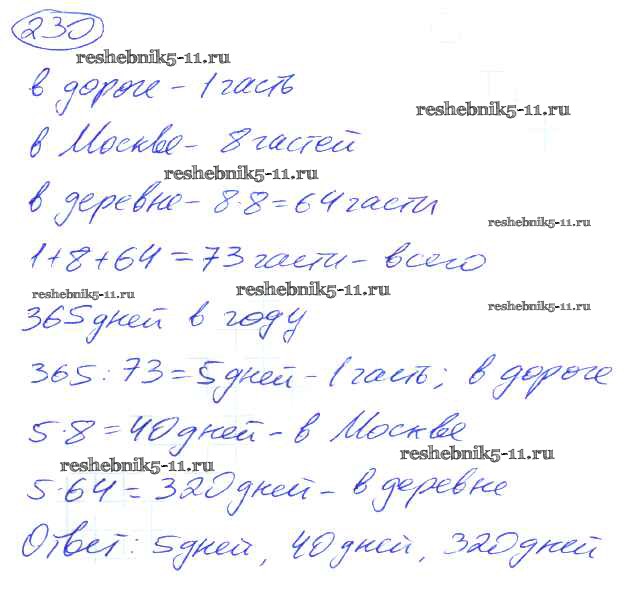 230
reshebnik5-11.ru
в дороге - 1 часть
reshebnik5-11.ru
в Москве - 8 частей
reshebnik5-11.ru
в деревне - 8·8=64 части
reshebnik5-11.ru
1+8+64=73 части - всего
reshebnik5-11.ru
reshebnik5-11.ru
reshebnik5-11.ru
365 дней в году
365:73=5 дней - 1 часть; в дороге
5·8=40 дней - в Москве
reshebnik5-11.ru
reshebnik5-11.ru
5·64=320 дней - в деревне
Ответ: 5 дней, 40 дней, 320 дней